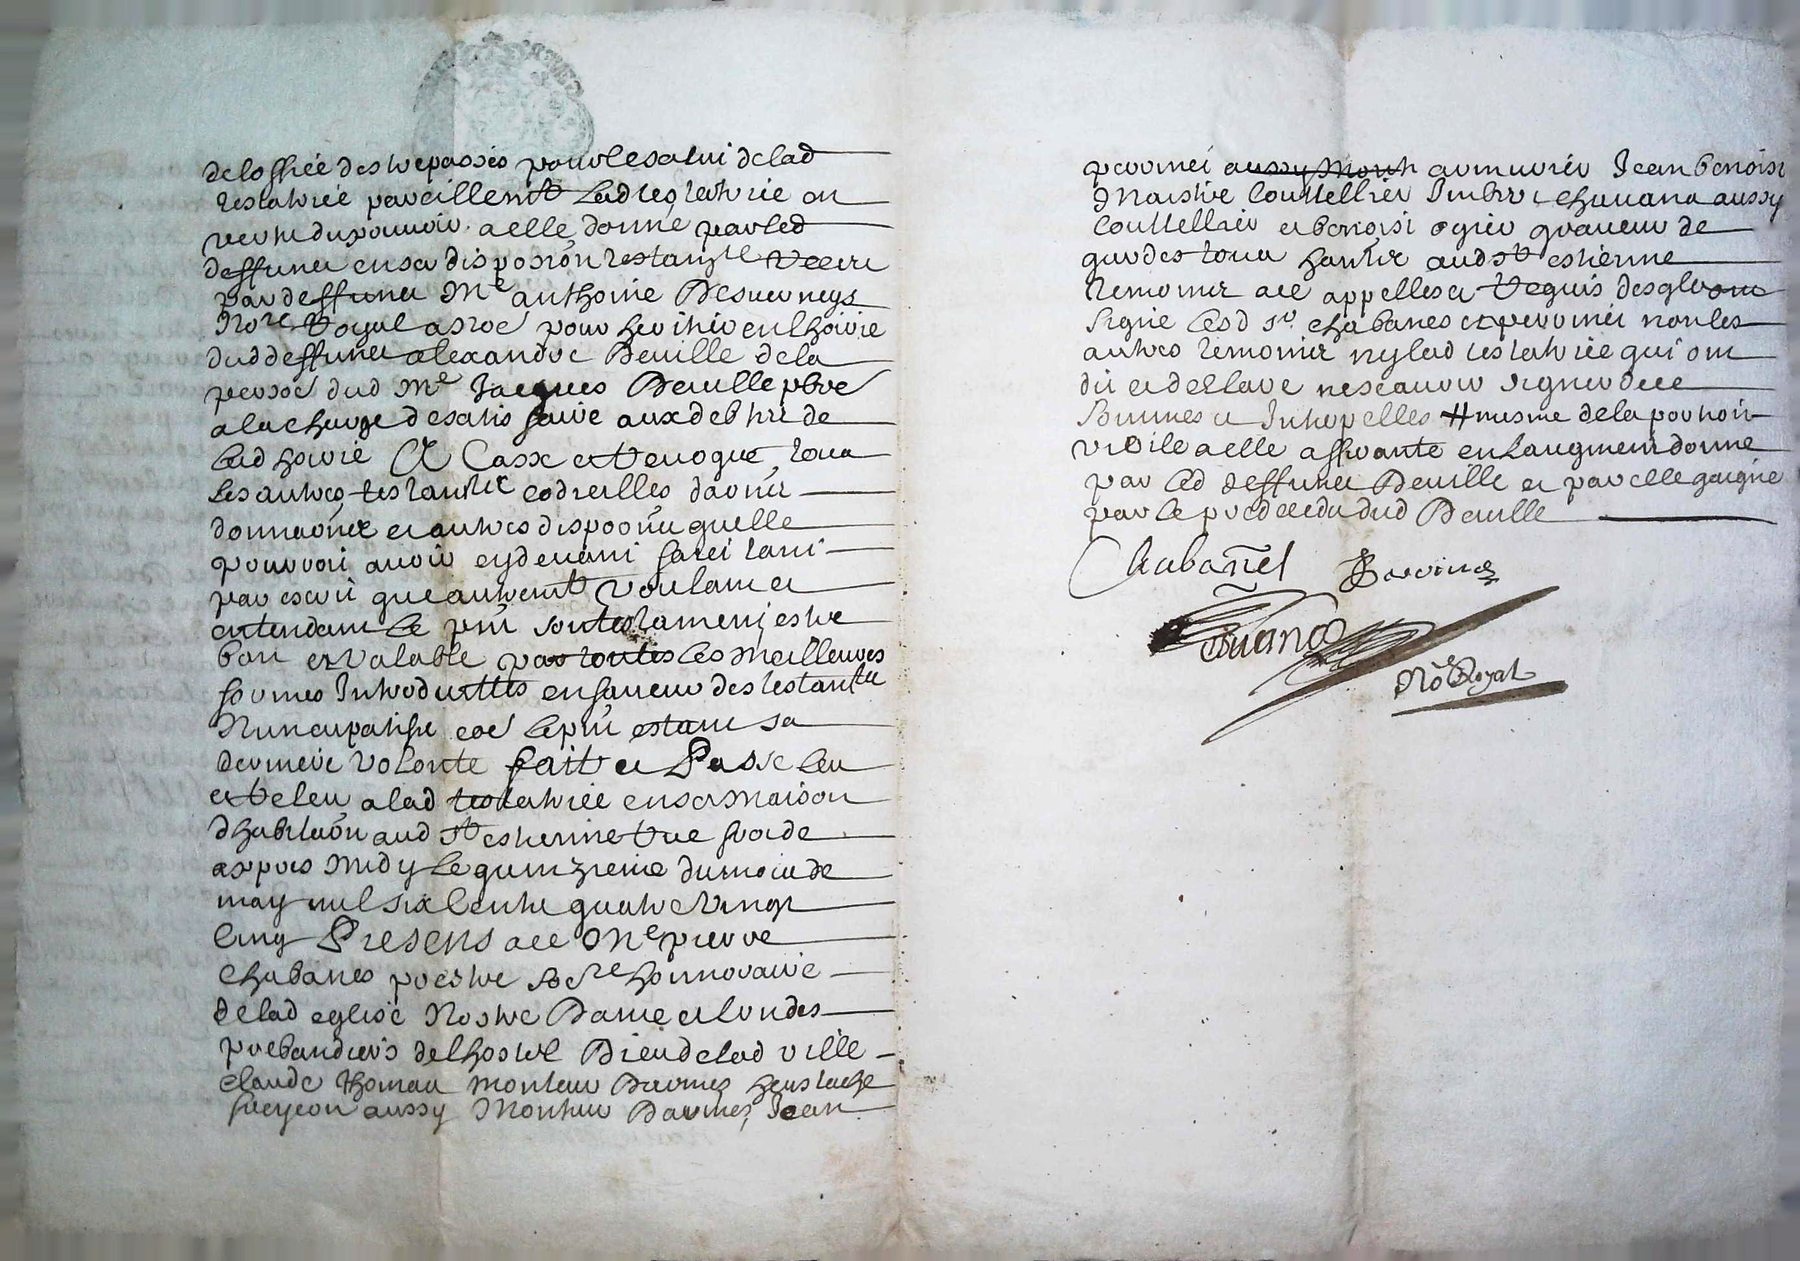 de loffice des trepassés pour le salut de lad
testatrice pareillemt lad testatrice en
vertu du pouvoir a elle donné par led
deffunct en sa dispoon testamtre receu
par deffunct Me anthoine Desverneys
Nore Royal a nōe pour heritier en lhoirie
dud deffunct alexandre Deville de la
persōe dud Me Jacques Deville pbre
a la charge de satisfaire aux debtes de
lad hoirie Et Casse et revoque tous
les autres testamts codicilles daōns
donnaōns et autres dispoōns quelle
pourroit avoir cy devant faict tant
par escrit que autremt voulant et
entendant le pnt son testament estre
bon et valable par toutes les meilleures
formes Introduittes en faveur des testamts
Nuncupatifs coē le pnt estant sa
derniere volonte fait et Passe leu
et releu a lad testatrice en sa maison
dhabitaōn aud St estienne rue froide
apres midy le quinzieme du mois de
may mil six Cents quatre vingt
Cinq Presens ace Me pierre
Chabanes prestre socre honnoraire
de lad eglise Nostre Dame et lun des
prebandiers de lhostel Dieu de lad ville
Claude thomas monteur Darmes heustache
freycon aussy Monteur Darmes Jean
perrinet aussy Mont armurier Jean benoist
Maistre Couttellier Imber Chavana aussy
Couttellier et benoist ogier graveur de
gardes tous habtz aud St estienne
temoings ace appelles et requis desqls ont
signe lesd sr Chabanes et perrinet non les
autres temoings ny lad testatrice qui ont
dit et declare ne scavoir signer de ce
sommes et Interpelles # mesme de la portion
virile a elle afferante en laugment donne
par led deffunct Deville et par elle gaigné
par le predeces dud Deville
Chabanes Perrinet
Nōe Royal